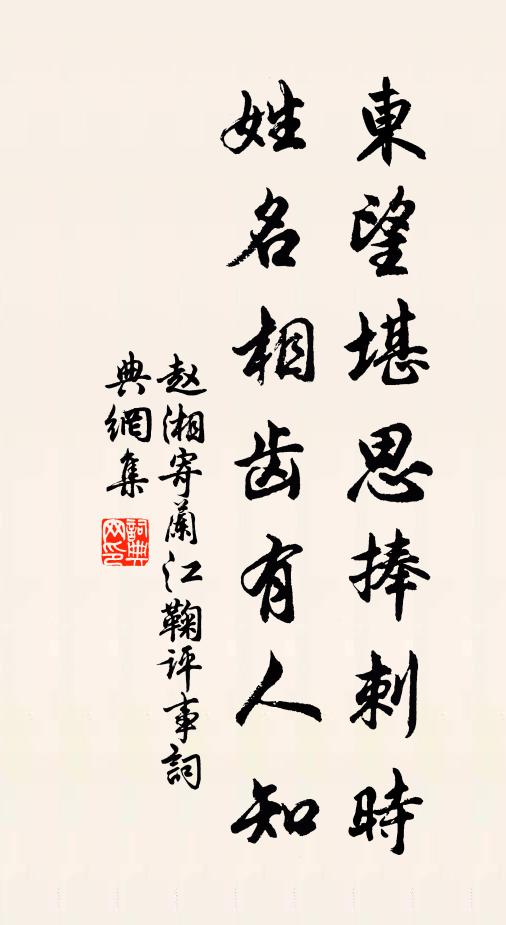 東望堪思捧刺時
姓名相齿有人知
赵湘寄蘭江鞠评事詞
典網集
詞典網印